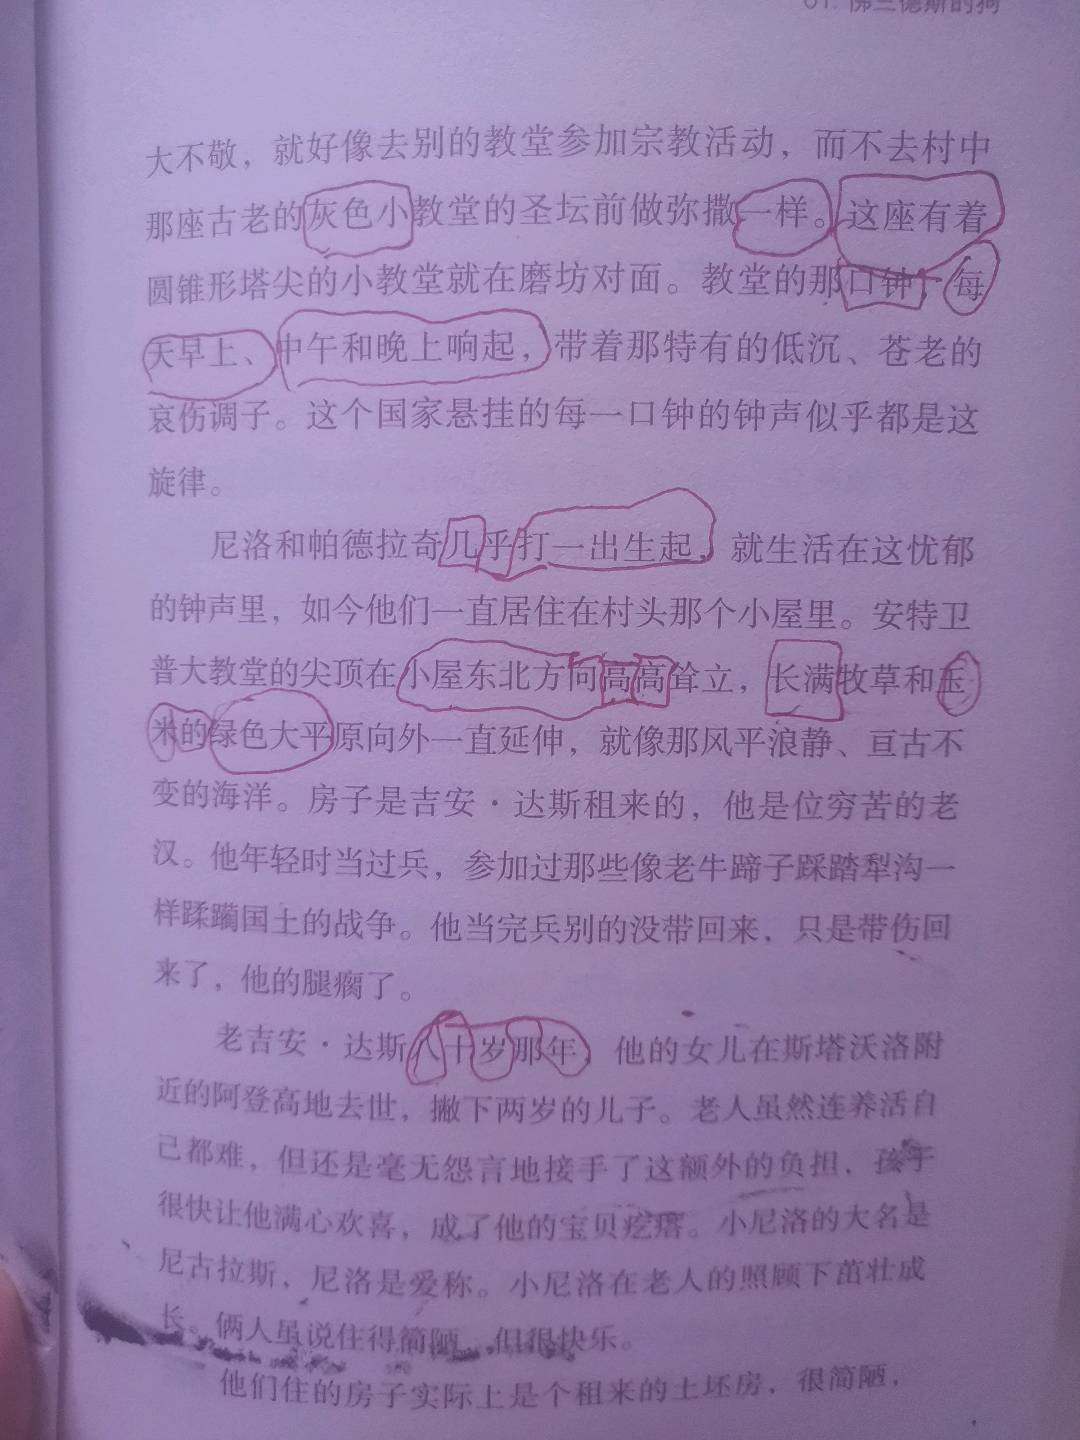 01. 佛兰德斯的狗
大不敬，就好像去别的教堂参加宗教活动，而不去村中
那座古老的灰色小教堂的圣坛前做弥撒一样。这座有着
圆锥形塔尖的小教堂就在磨坊对面。教堂的那口钟，每
天早上、中午和晚上响起，带着那特有的低沉、苍老的
哀伤调子。这个国家悬挂的每一口钟的钟声似乎都是这
旋律。
尼洛和帕德拉奇几乎打一出生起，就生活在这忧郁
的钟声里，如今他们一直居住在村头那个小屋里。安特卫
普大教堂的尖顶在小屋东北方向高高耸立，长满牧草和玉
米的绿色大平原向外一直延伸，就像那风平浪静、亘古不
变的海洋。房子是吉安·达斯租来的，他是位穷苦的老
汉。他年轻时当过兵，参加过那些像老牛蹄子踩踏犁沟一
样蹂躏国土的战争。他当完兵别的没带回来，只是带伤回
来了，他的腿瘸了。
老吉安·达斯八十岁那年，他的女儿在斯塔沃洛附
近的阿登高地去世，撇下两岁的儿子。老人虽然连养活自
己都难，但还是毫无怨言地接手了这额外的负担，孩子
很快让他满心欢喜，成了他的宝贝疙瘩。小尼洛的大名是
尼古拉斯，尼洛是爱称。小尼洛在老人的照顾下茁壮成
长。俩人虽说住得简陋，但很快乐。
他们住的房子实际上是个租来的土坯房，很简陋，